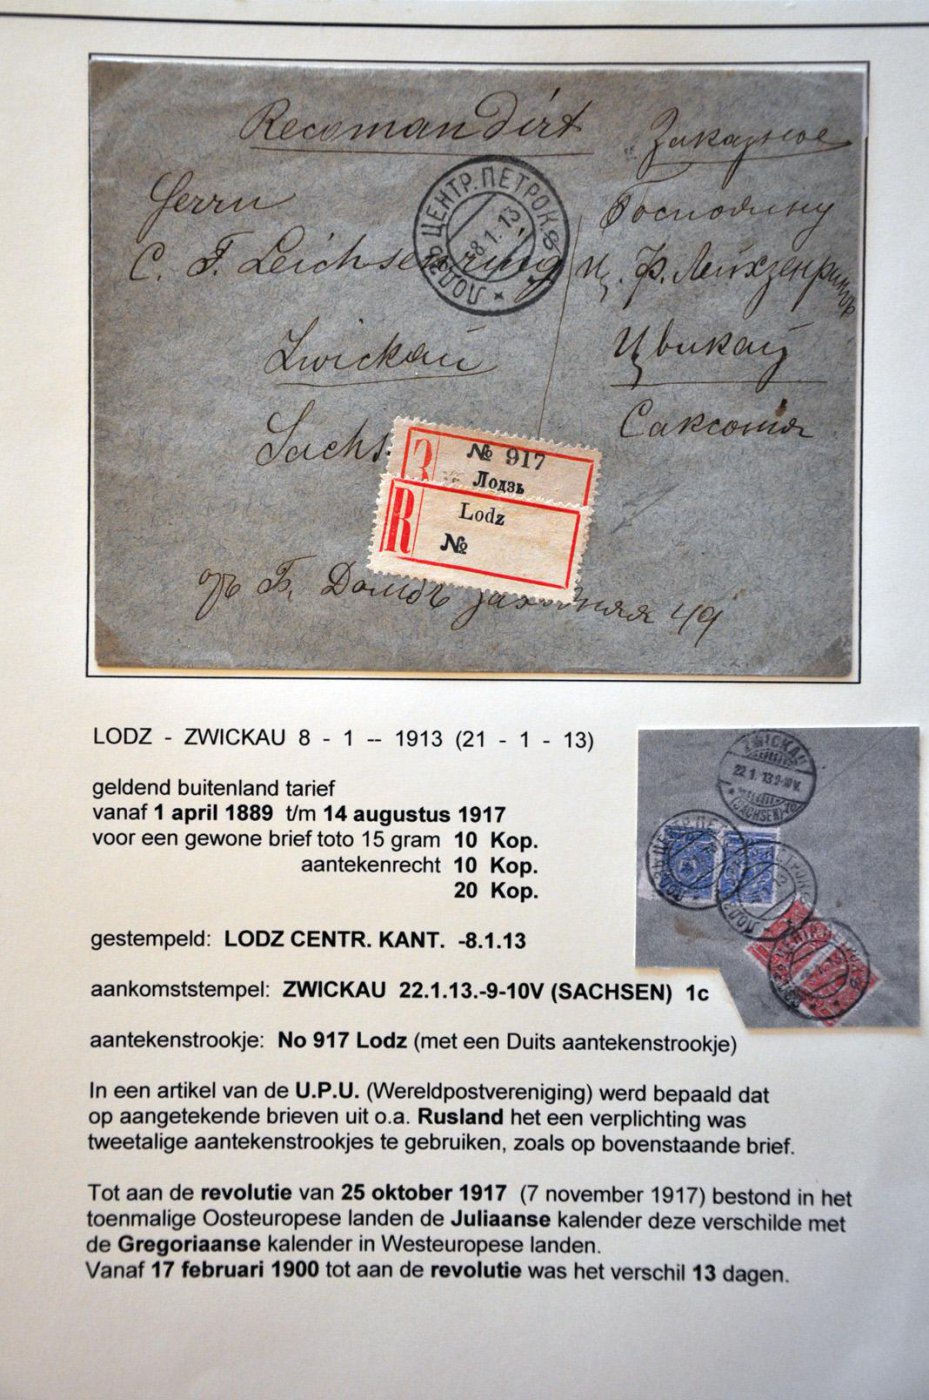 Recomandirt
Заказное
Herrn
Господину
C. F. Leichsenring
Ц. Ф. Лейхзенрингъ
Zwickau
Цвикау
Sachs
Саксонія
ЛОДЗЬ ЦЕНТР. ПЕТРОК.
-8.1.13
З
№ 917
Лодзь
R
Lodz
№
отъ Б. Домбъ заходняя 49
LODZ - ZWICKAU 8 - 1 -- 1913 (21 - 1 - 13)
geldend buitenland tarief
vanaf 1 april 1889 t/m 14 augustus 1917
voor een gewone brief toto 15 gram 10 Kop.
aantekenrecht 10 Kop.
20 Kop.
gestempeld: LODZ CENTR. KANT. -8.1.13
aankomststempel: ZWICKAU 22.1.13.-9-10V (SACHSEN) 1c
aantekenstrookje: No 917 Lodz (met een Duits aantekenstrookje)
In een artikel van de U.P.U. (Wereldpostvereniging) werd bepaald dat
op aangetekende brieven uit o.a. Rusland het een verplichting was
tweetalige aantekenstrookjes te gebruiken, zoals op bovenstaande brief.
Tot aan de revolutie van 25 oktober 1917 (7 november 1917) bestond in het
toenmalige Oosteuropese landen de Juliaanse kalender deze verschilde met
de Gregoriaanse kalender in Westeuropese landen.
Vanaf 17 februari 1900 tot aan de revolutie was het verschil 13 dagen.
ZWICKAU
22.1.13.9-10V.
(SACHSEN)